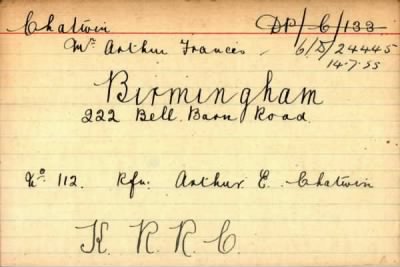 Chatwin DP/6/133
Mr. Arthur Francis. 6/D/24445
14.7.55
Birmingham
222 Bell Barn Road.
No. 112. Rfn. Arthur. E. Chatwin
K. R. R. C.